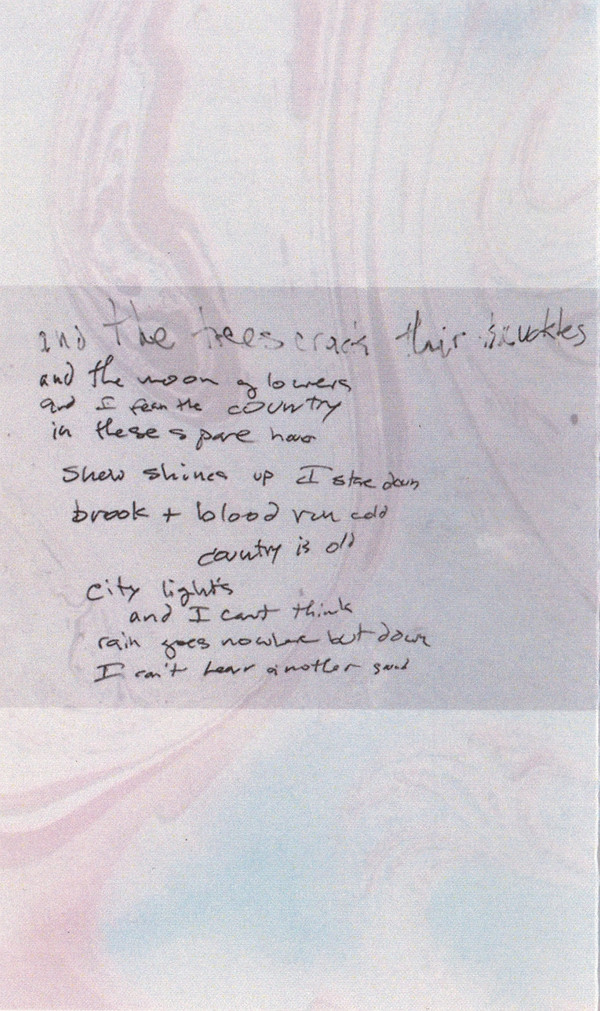 and the trees crack their knuckles
and the moon glowers
and I fear the country
in these spare hours
snow shines up I stare down
brook + blood run cold
country is old
city lights
and I can't think
rain goes nowhere but down
I can't hear another sound